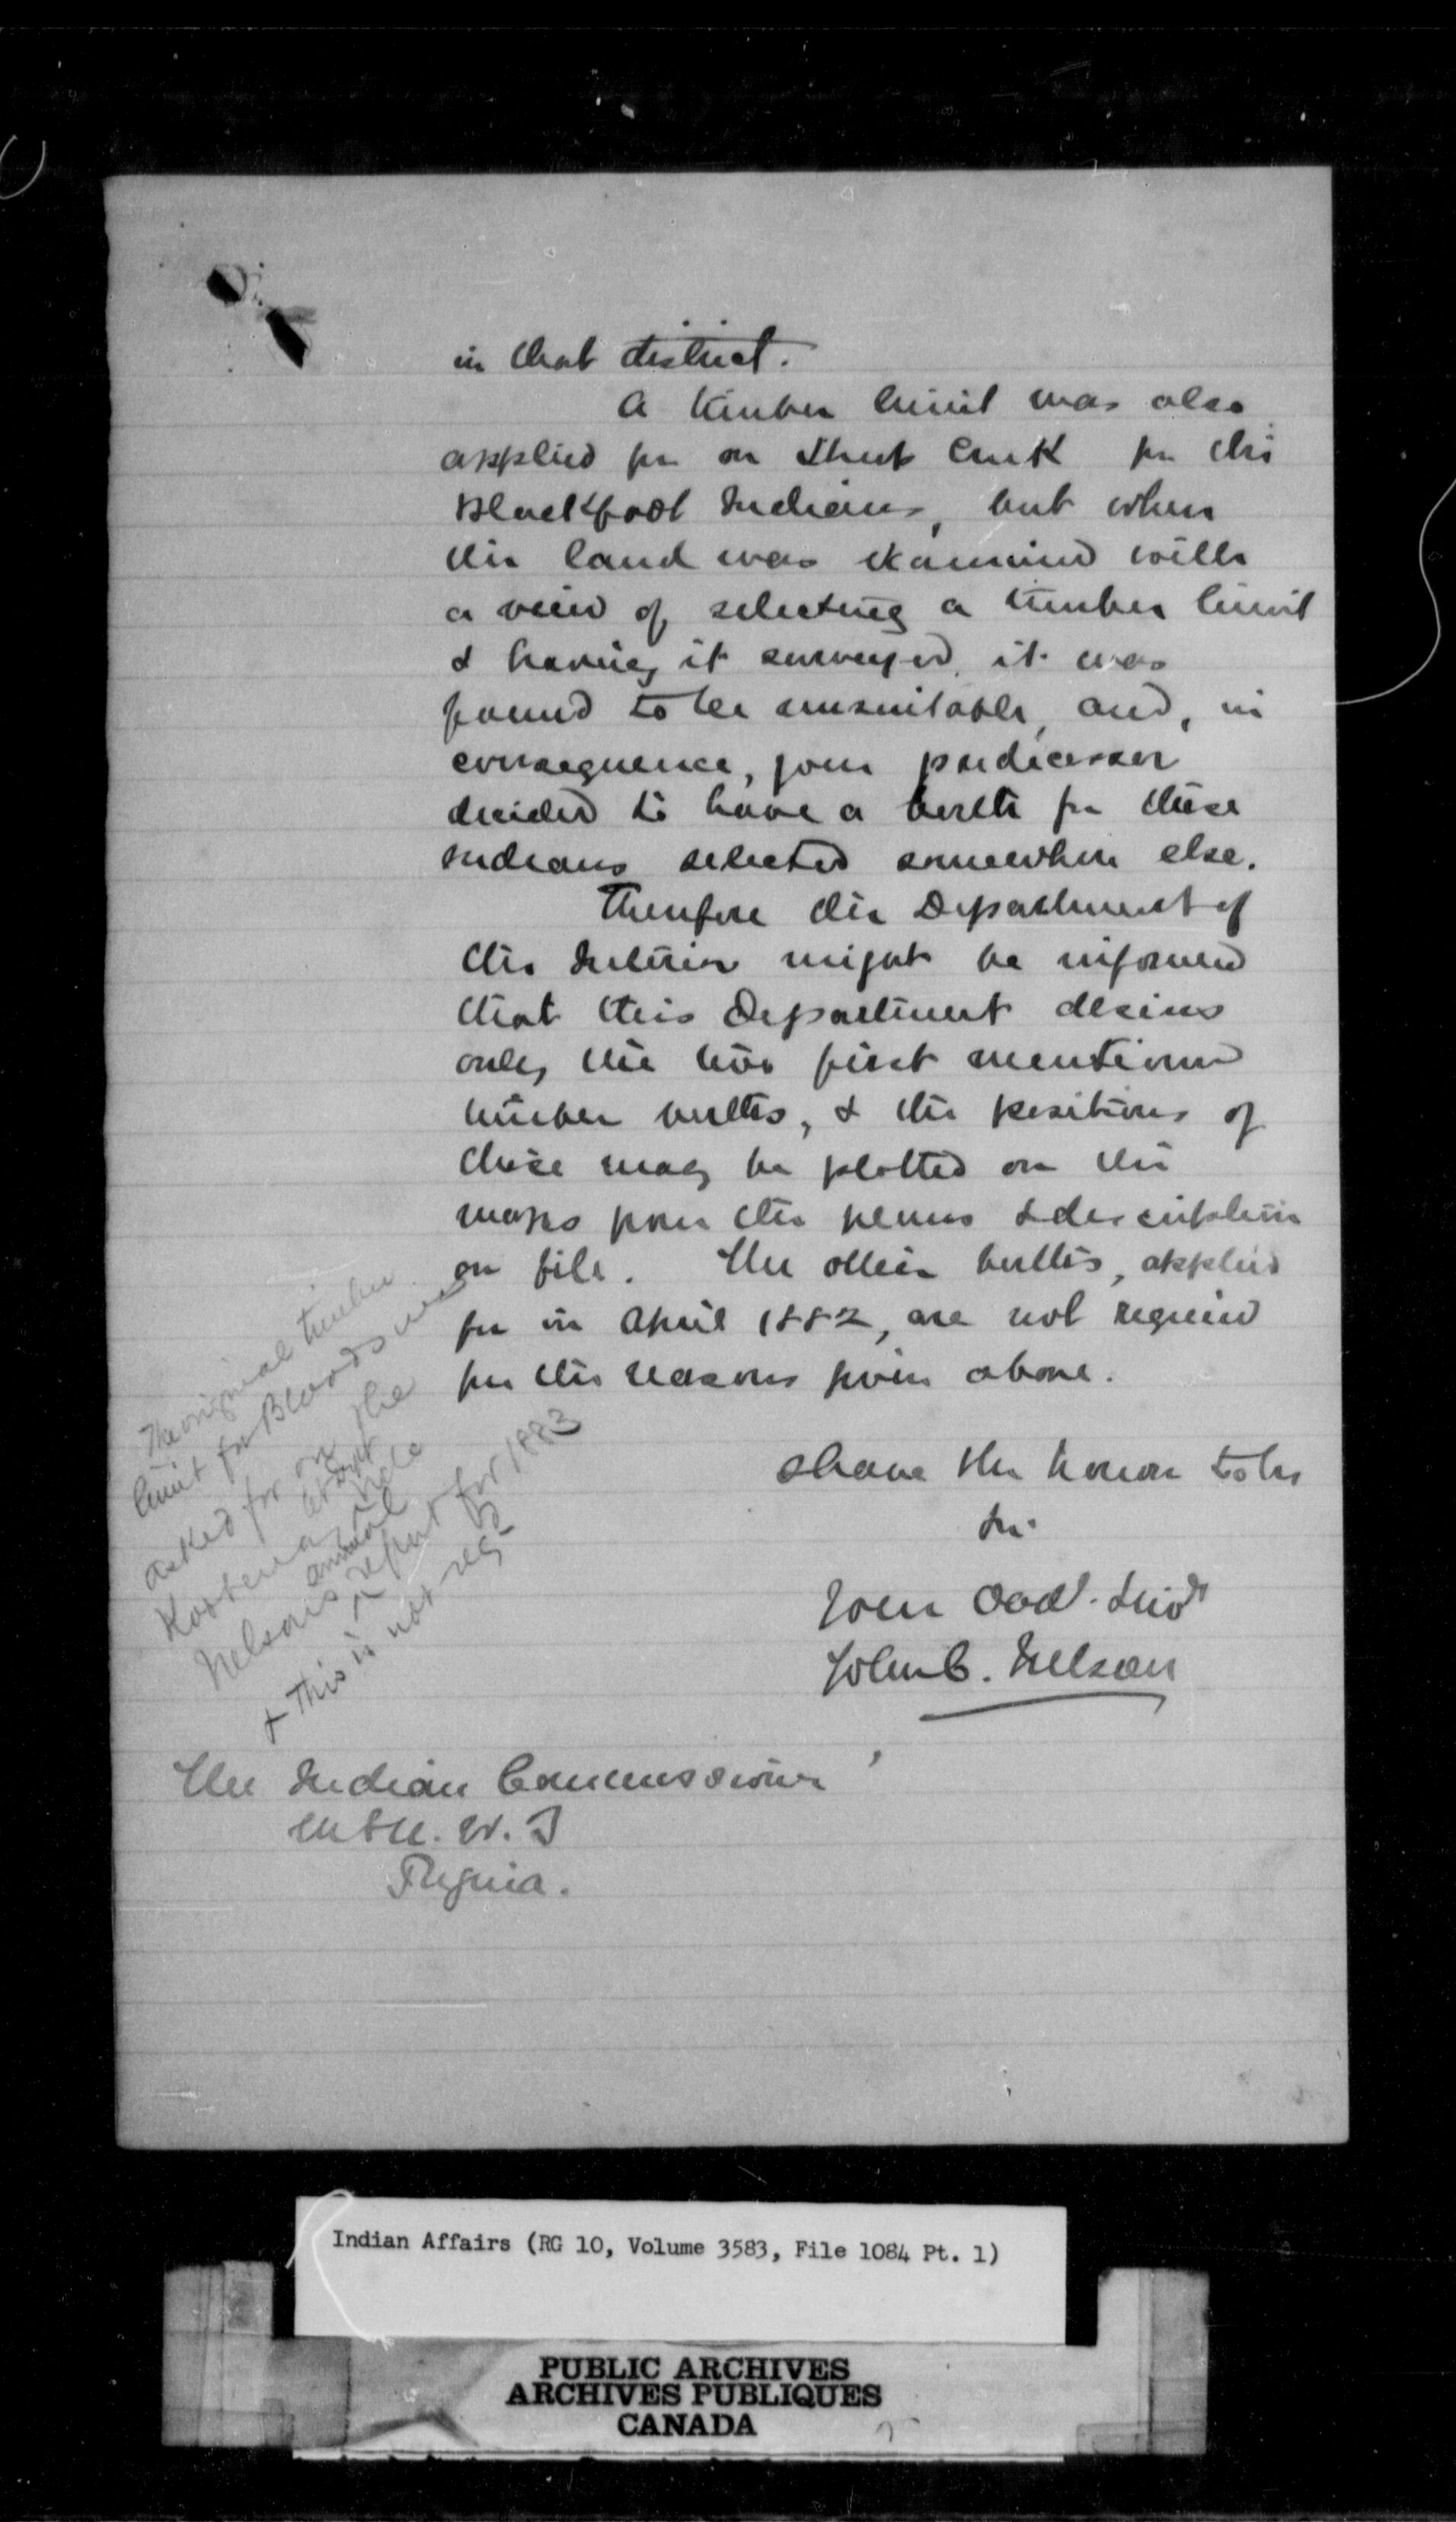 in that district.
A timber limit was also
applied for on Creek for the
Blackfoot Indians, but when
the land was examined with
a view of selecting a timber limit
& having it surveyed, it was
found to be unsuitable, and, in
consequence, your predecessor
decided to have a berth for these
Indians selected somewhere else.
Therefore the Department of
the Interior might be informed
that this Department desires
only the two first mentioned
timber berths, & the positions of
these may be plotted on the
maps from the plans & description
on file. The other berths, applied
for in April 1882, are not required
for the reasons given above.
I have the honor to be
Sir
Your Obdt. Servt
John C. Nelson
The original timber
limit for Bloods was
asked for on the
Kootenai
Nelson's annual report for 1883
& This is not reqd
The Indian Commissioner
M & N. W. T
Regina.
Indian Affairs (RG 10, Volume 3583, File 1084 Pt. 1)
PUBLIC ARCHIVES
ARCHIVES PUBLIQUES
CANADA